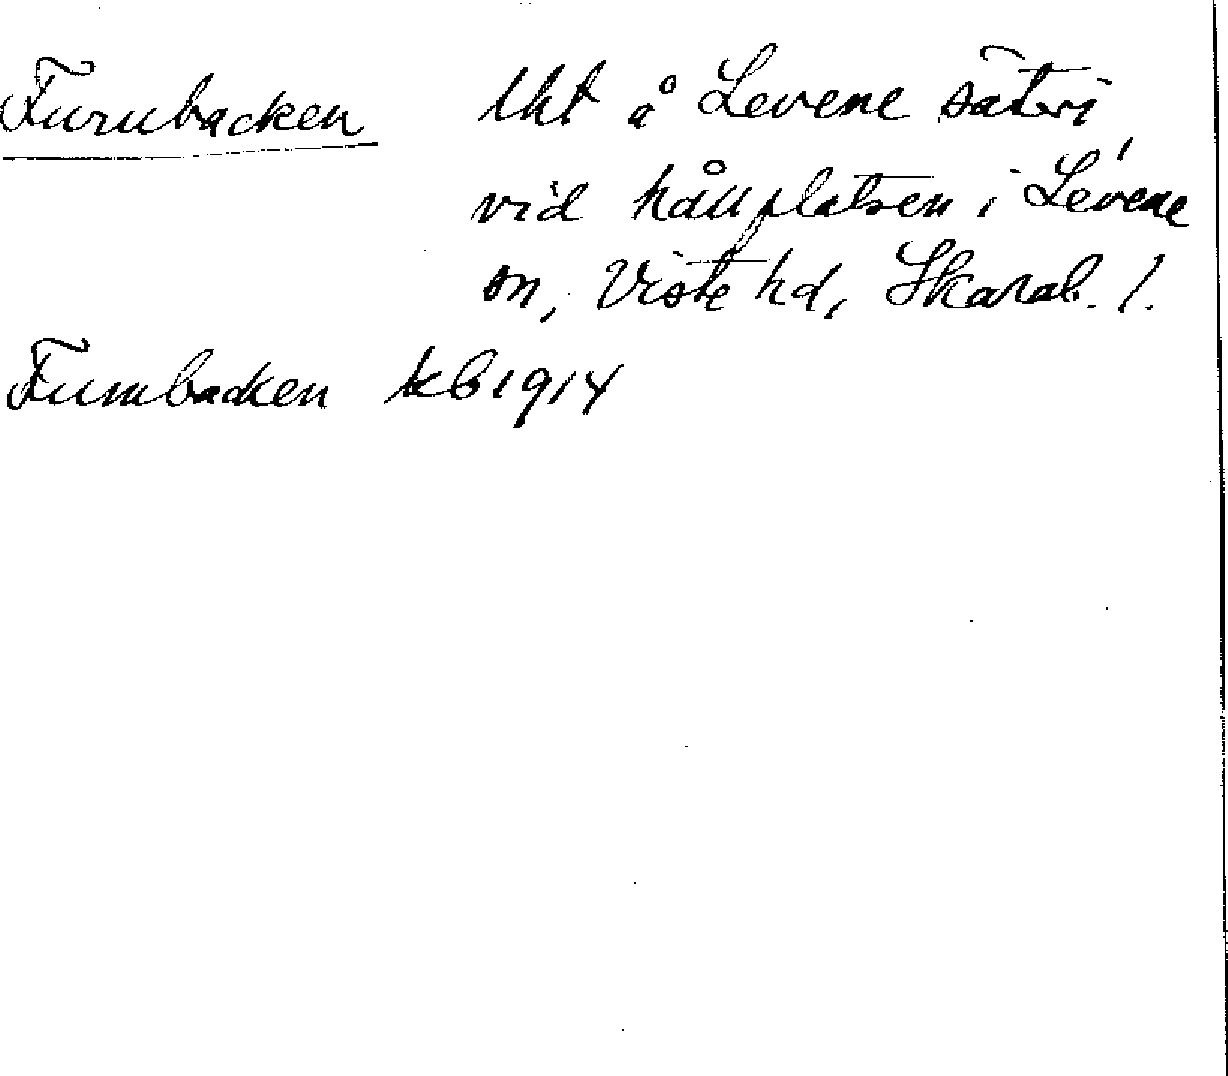 Furubacken lht å Levene säteri
vid hållplatsen i Levene
sn, Viste hd, Skarab. l.
Furubacken kb 1914